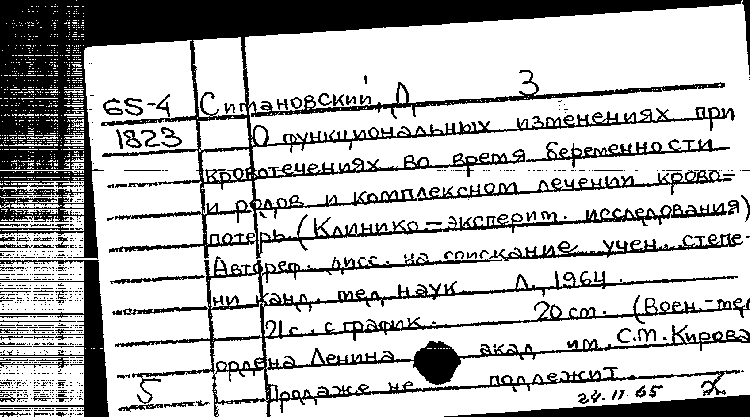 65-4 Ситановский, Л 3
1823 О функциональных изменениях при
кровотечениях во время беременности
и родов и комплексном лечении крово-
потерь. (Клинико-эксперим. исследования)
Автореф. дисс. на соискание учен. степе-
ни канд. мед. наук. Л., 1964.
21 с. с график. 20 см. (Воен.-мед
ордена Ленина акад им. С.М.Кирова
5 Продаже не подлежит.
24.11 65